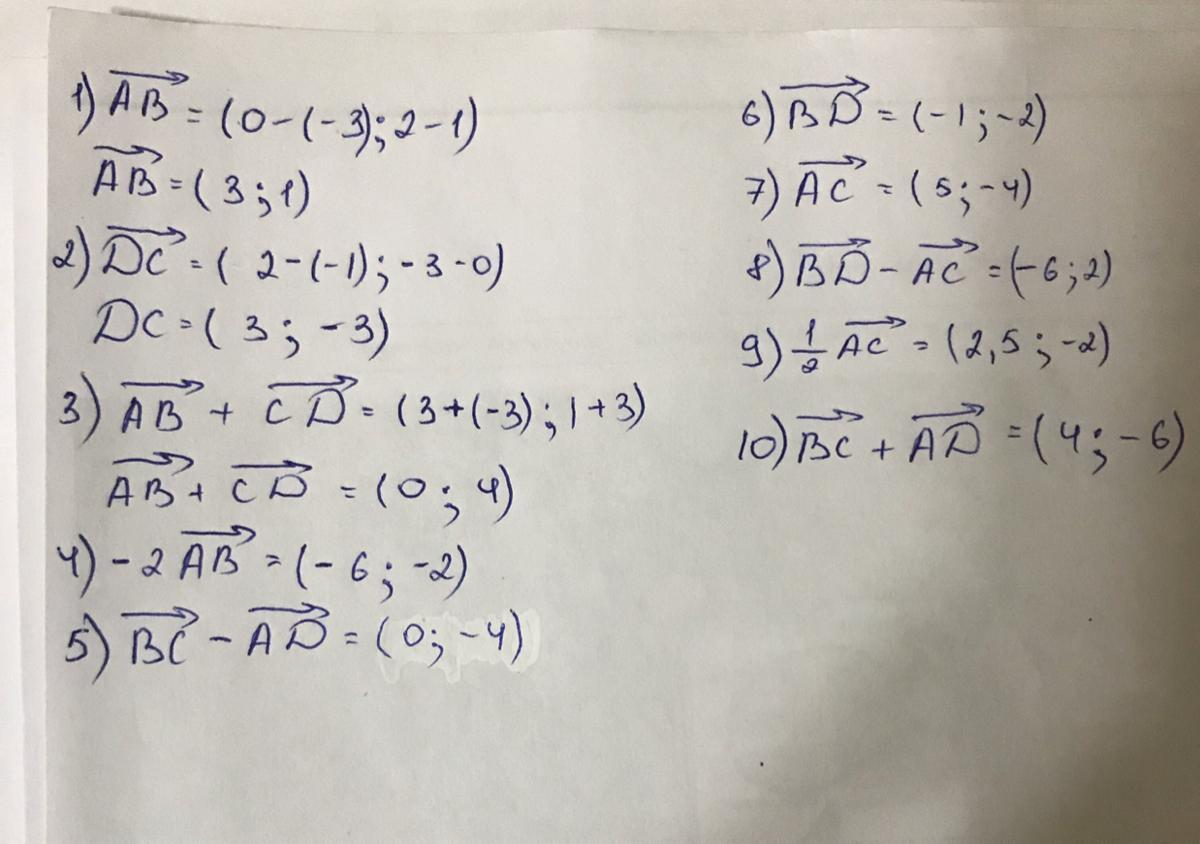 1) AB = (0-(-3); 2-1)
AB = (3; 1)
2) DC = (2-(-1); -3-0)
DC = (3; -3)
3) AB + CD = (3+(-3); 1+3)
AB + CD = (0; 4)
4) -2 AB = (-6; -2)
5) BC - AD = (0; -4)
6) BD = (-1; -2)
7) AC = (5; -4)
8) BD - AC = (-6; 2)
9) 1/2 AC = (2,5; -2)
10) BC + AD = (4; -6)